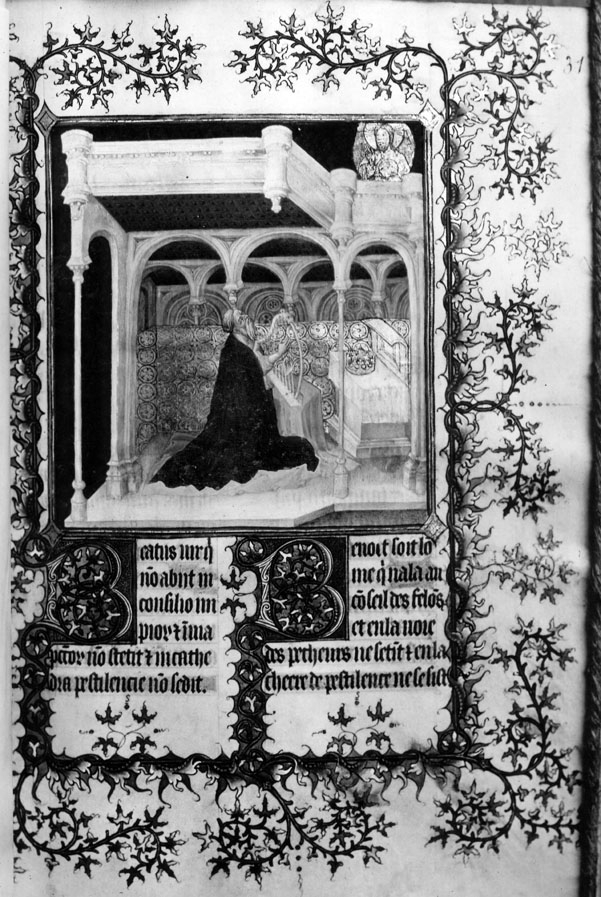 31
Beatus uir q̄
nō abiit in
consilio im
pioꝝ ⁊ in uia
p̄ctoꝝ nō stetit ⁊ in cathe
dra pestilencie nō sedit.
Benoit soit lo
me q̄ nala au
cōseil des felōs
et en la uoie
des pecheurs ne setut ⁊ en la
cheere de pestilence ne se sist